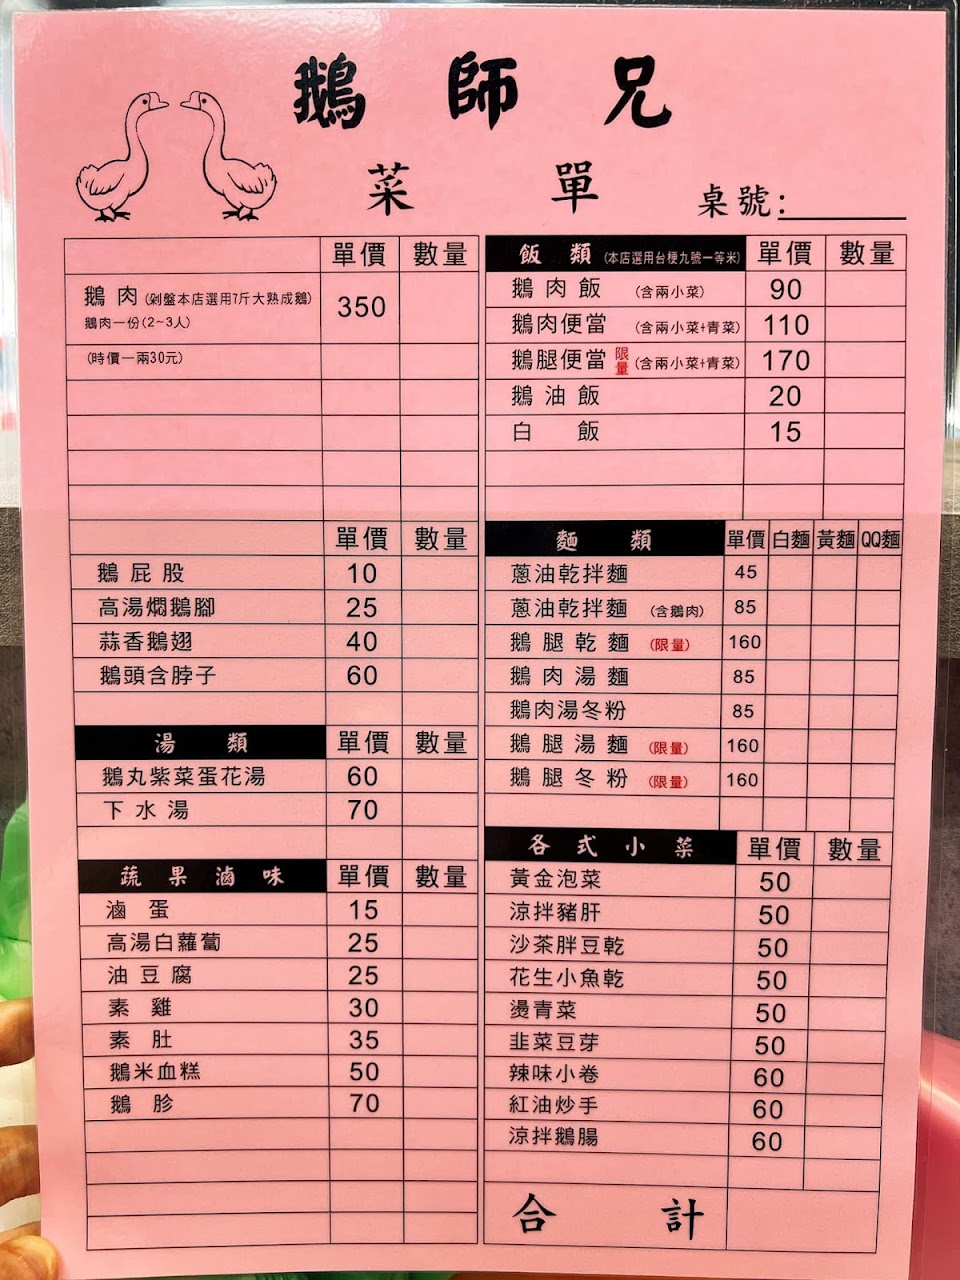 鵝師兄
菜單
桌號:
單價 數量
鵝肉(剁盤本店選用7斤大熟成鵝)
鵝肉一份(2~3人)
350
(時價一兩30元)
單價 數量
鵝屁股 10
高湯燜鵝腳 25
蒜香鵝翅 40
鵝頭含脖子 60
湯類 單價 數量
鵝丸紫菜蛋花湯 60
下水湯 70
蔬果滷味 單價 數量
滷蛋 15
高湯白蘿蔔 25
油豆腐 25
素雞 30
素肚 35
鵝米血糕 50
鵝胗 70
飯類(本店選用台梗九號一等米) 單價 數量
鵝肉飯 (含兩小菜) 90
鵝肉便當 (含兩小菜+青菜) 110
鵝腿便當 限量 (含兩小菜+青菜) 170
鵝油飯 20
白飯 15
麵類 單價 白麵 黃麵 QQ麵
蔥油乾拌麵 45
蔥油乾拌麵 (含鵝肉) 85
鵝腿乾麵 (限量) 160
鵝肉湯麵 85
鵝肉湯冬粉 85
鵝腿湯麵 (限量) 160
鵝腿冬粉 (限量) 160
各式小菜 單價 數量
黃金泡菜 50
涼拌豬肝 50
沙茶胖豆乾 50
花生小魚乾 50
燙青菜 50
韭菜豆芽 50
辣味小卷 60
紅油炒手 60
涼拌鵝腸 60
合計